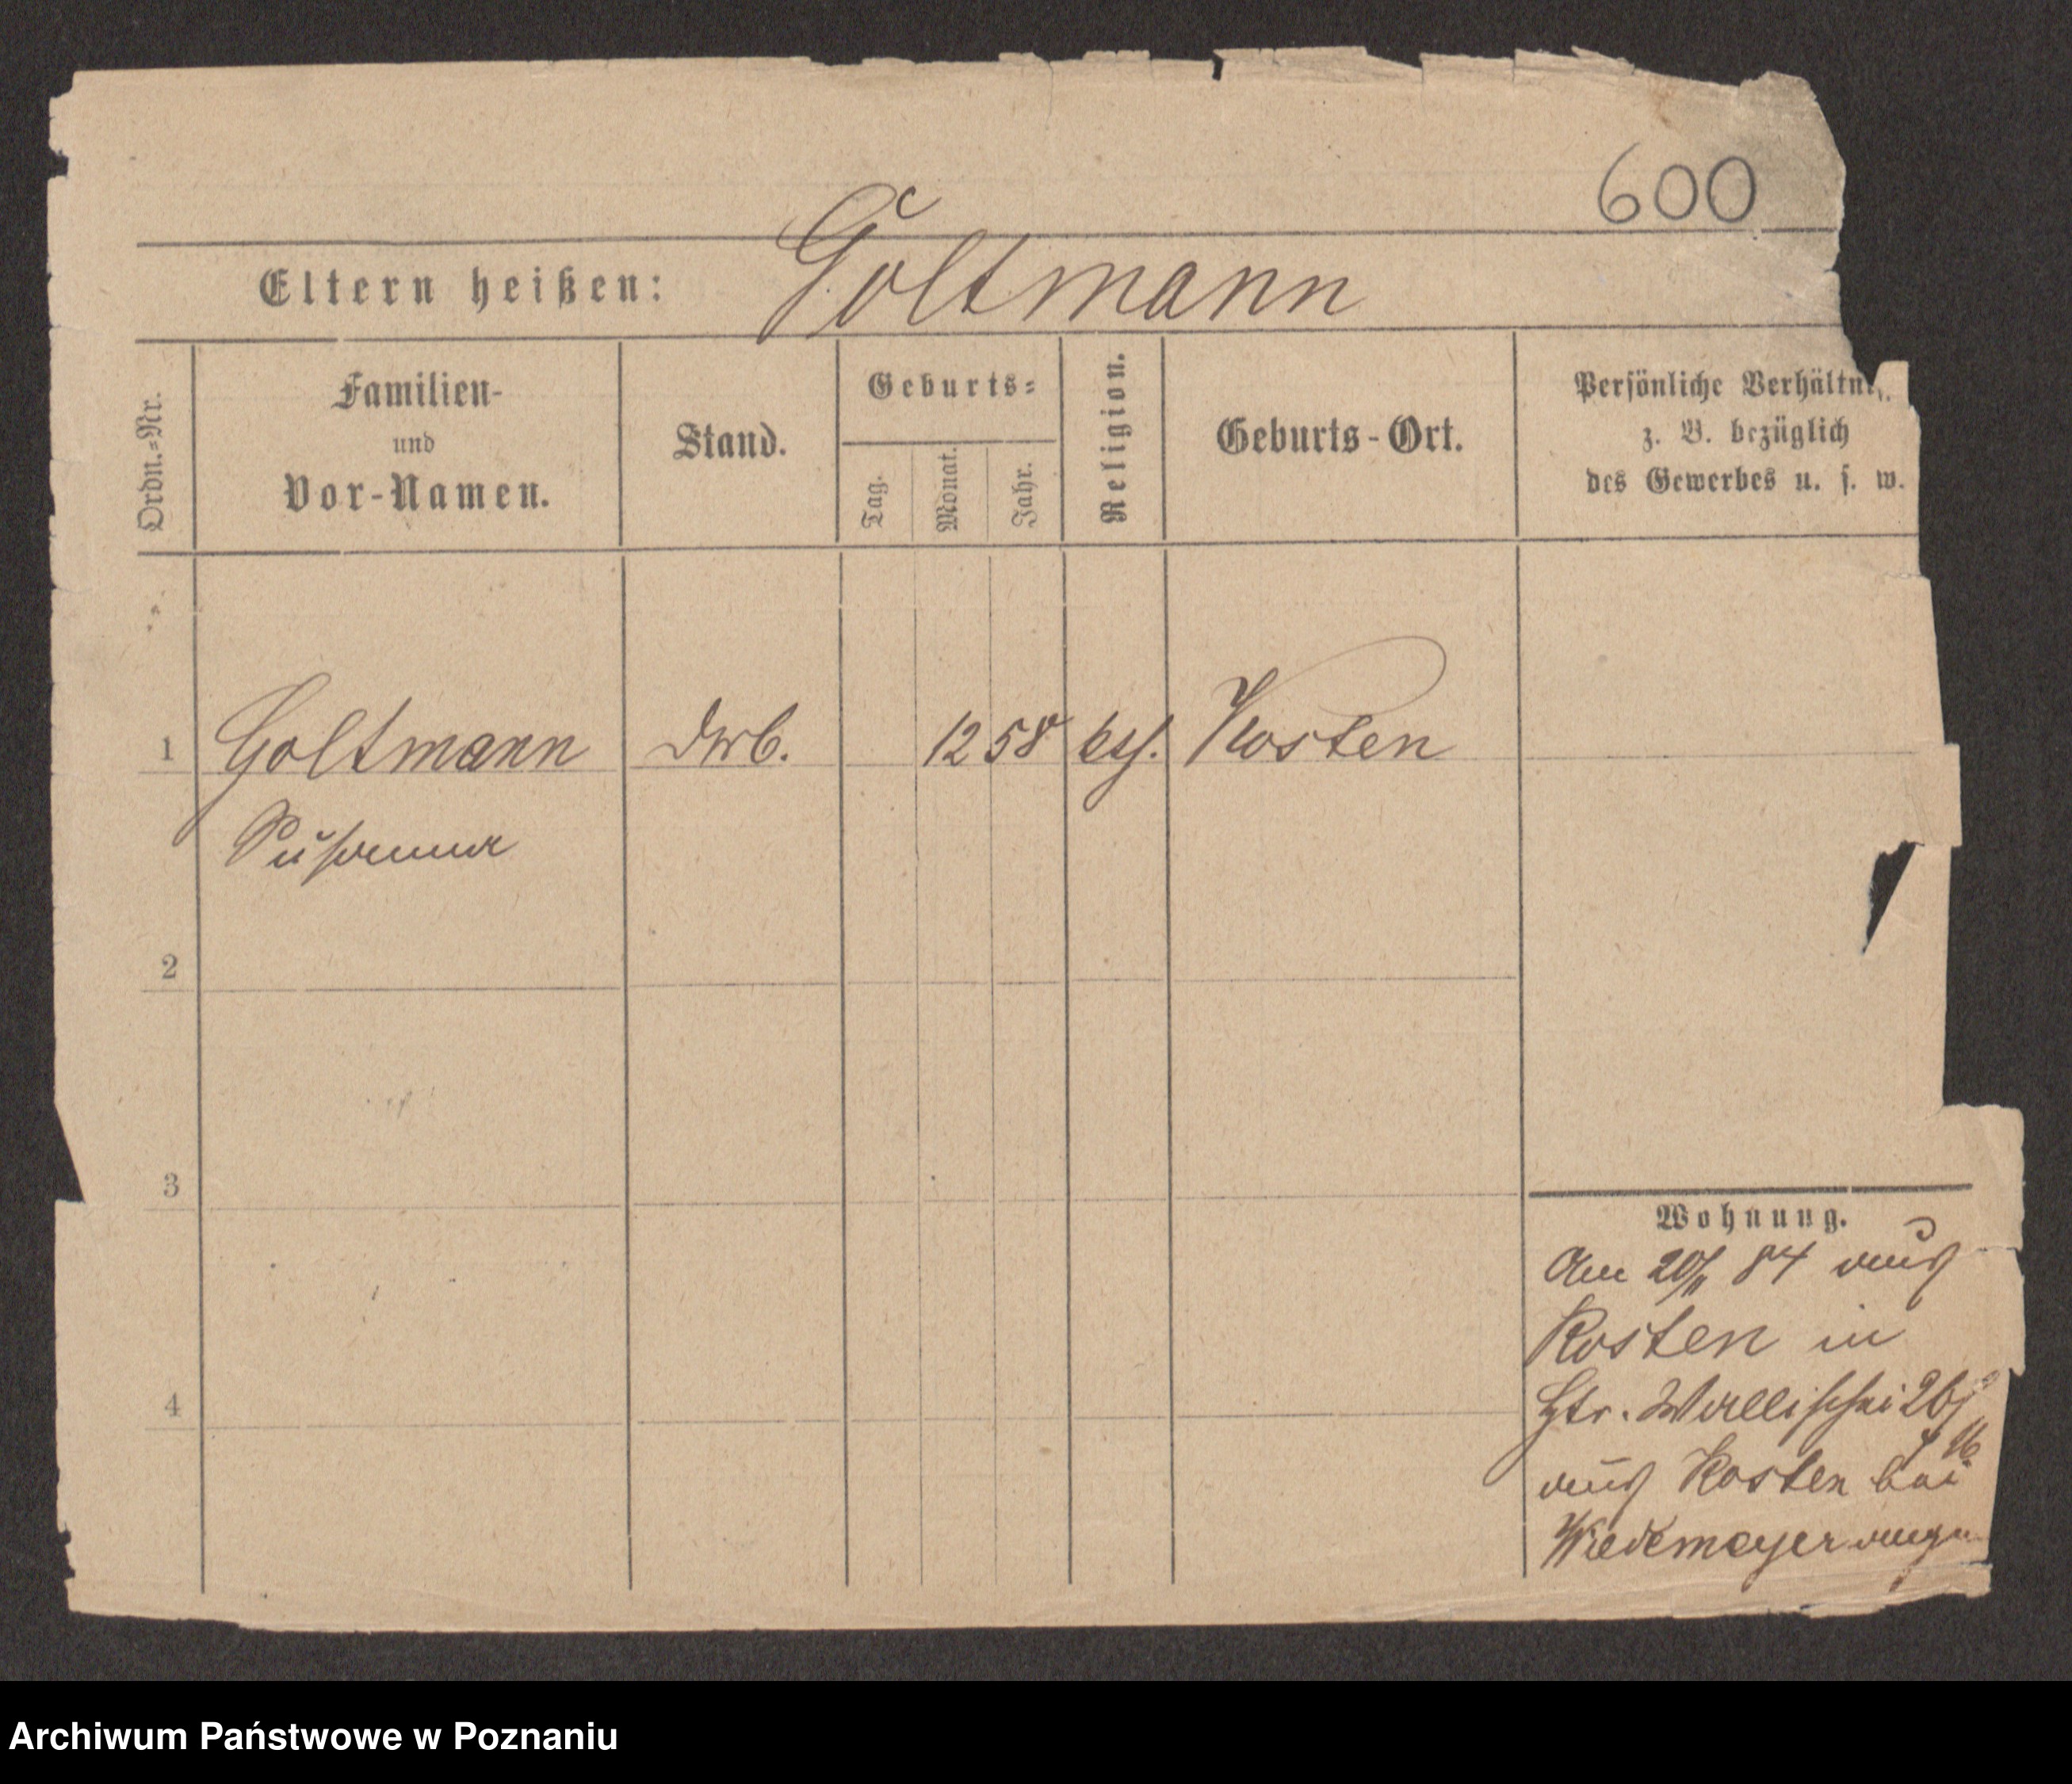 600
Eltern heißen: Goltmann
Ordn.=Nr.
Familien-
und
Vor-Namen.
Stand.
Geburts=
Tag.
Monat.
Jahr.
Religion.
Geburts-Ort.
Persönliche Verhältni
z. B. bezüglich
des Gewerbes u. s. w.
1 Goltmann 12 58 Kosten
Susanna
2
3
4
Wohnung.
Am 20/11 84 aus
Kosten in
Wallischei
aus Kosten bei
Wiedemeyer
Archiwum Państwowe w Poznaniu